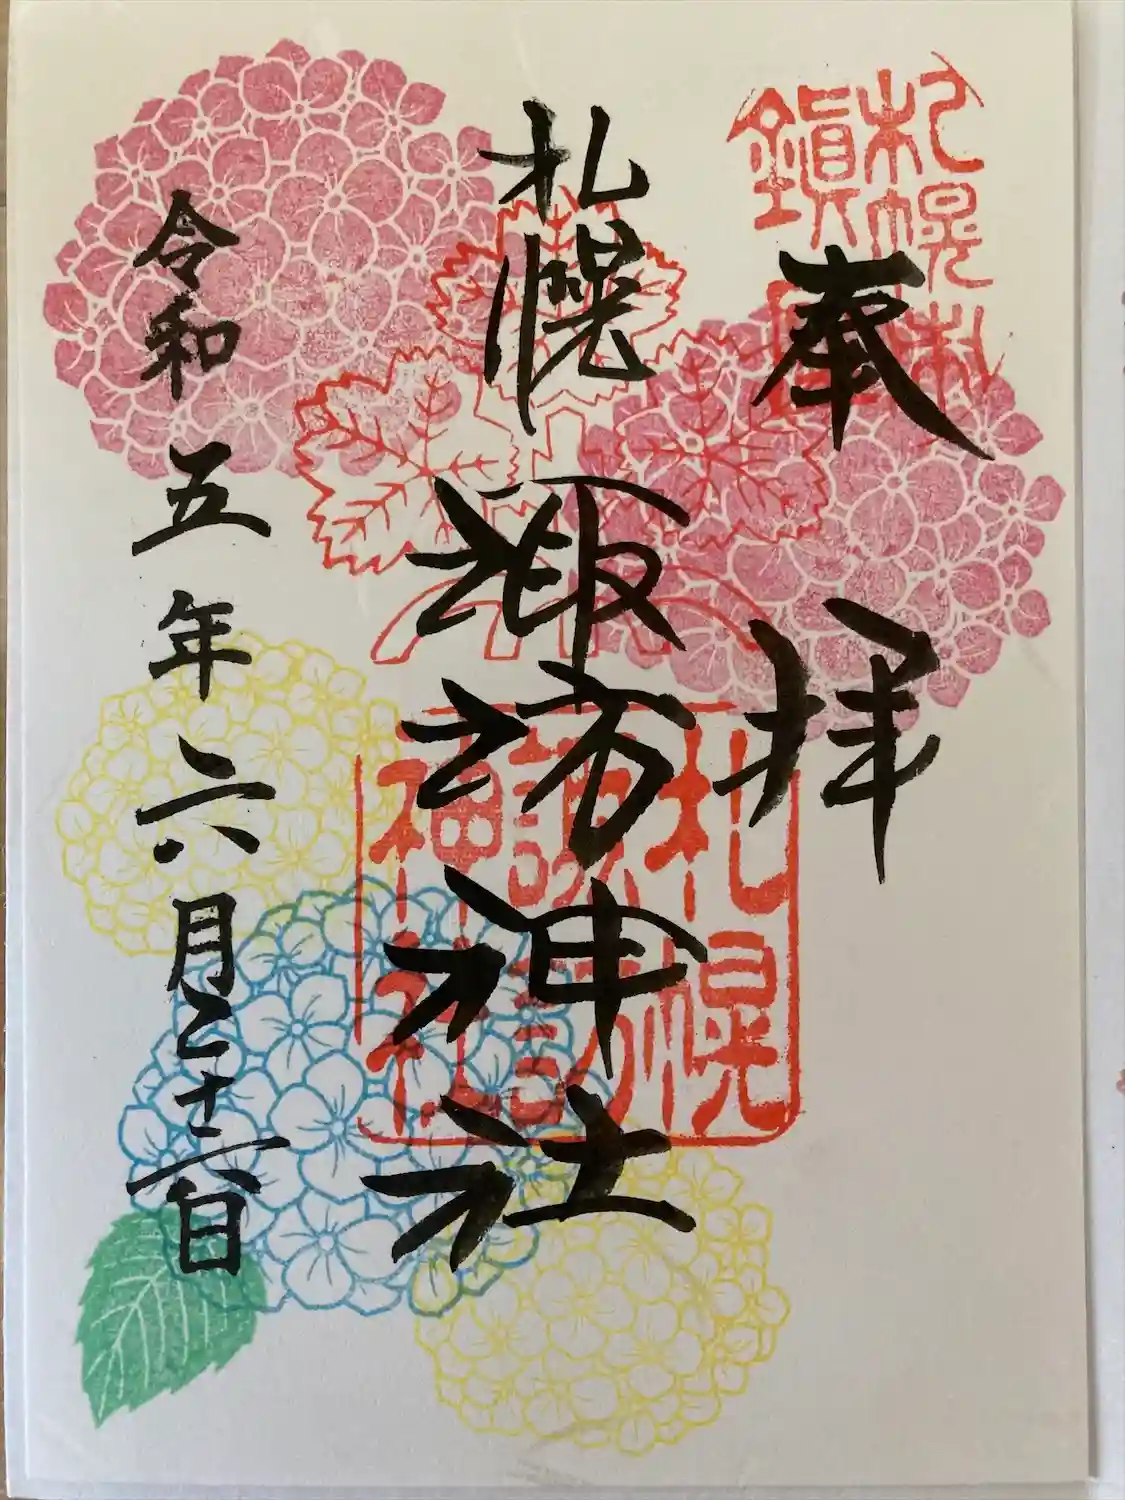 札幌村
鎮
奉拝
札幌諏訪神社
札幌
諏訪
神社
令和五年六月二十二日